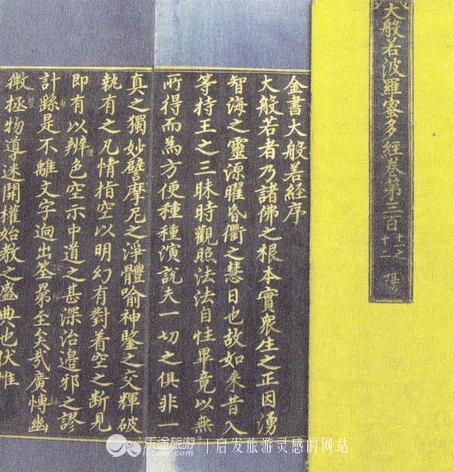 大般若波羅蜜多經卷第三百 十一之
十二 陽
金書大般若經序
大般若者乃諸佛之根本實衆生之正因湧
智海之靈源曜昏衢之慧日也故如来昔入
等持王之三昧時觀照法法自性畢竟以無
所得而為方便種種演說夫一切之俱非一
真之獨妙譬摩尼之淨體喻神鑒之交輝破
執有之凡情指空以明幻有對着空之断見
即有以辨色空示中道之甚深洽邉邪之謬
計繇是不離文字迥出筌罤至矣哉廣博幽
微拯物導迷開權始教之盛典也伏惟
乐途旅游 | 启发旅游灵感的网站